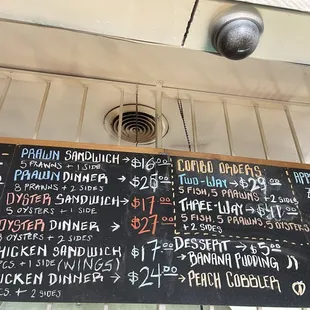 PRAWN SANDWICH → $16.00
5 PRAWNS + 1 SIDE
PRAWN DINNER → $20.00
8 PRAWNS + 2 SIDES
OYSTER SANDWICH → $17.00
5 OYSTERS + 1 SIDE
OYSTER DINNER → $27.00
8 OYSTERS + 2 SIDES
CHICKEN SANDWICH $17.00
PCS. + 1 SIDE (WINGS)
CHICKEN DINNER → $24.00
PCS. + 2 SIDES
COMBO ORDERS
TWO-WAY → $29.00
5 FISH, 5 PRAWNS + 2 SIDES
THREE-WAY → .00
5 FISH, 5 PRAWNS, 5 OYSTERS
+ 2 SIDES
DESSERT → $5.00
BANANA PUDDING
PEACH COBBLER
APP